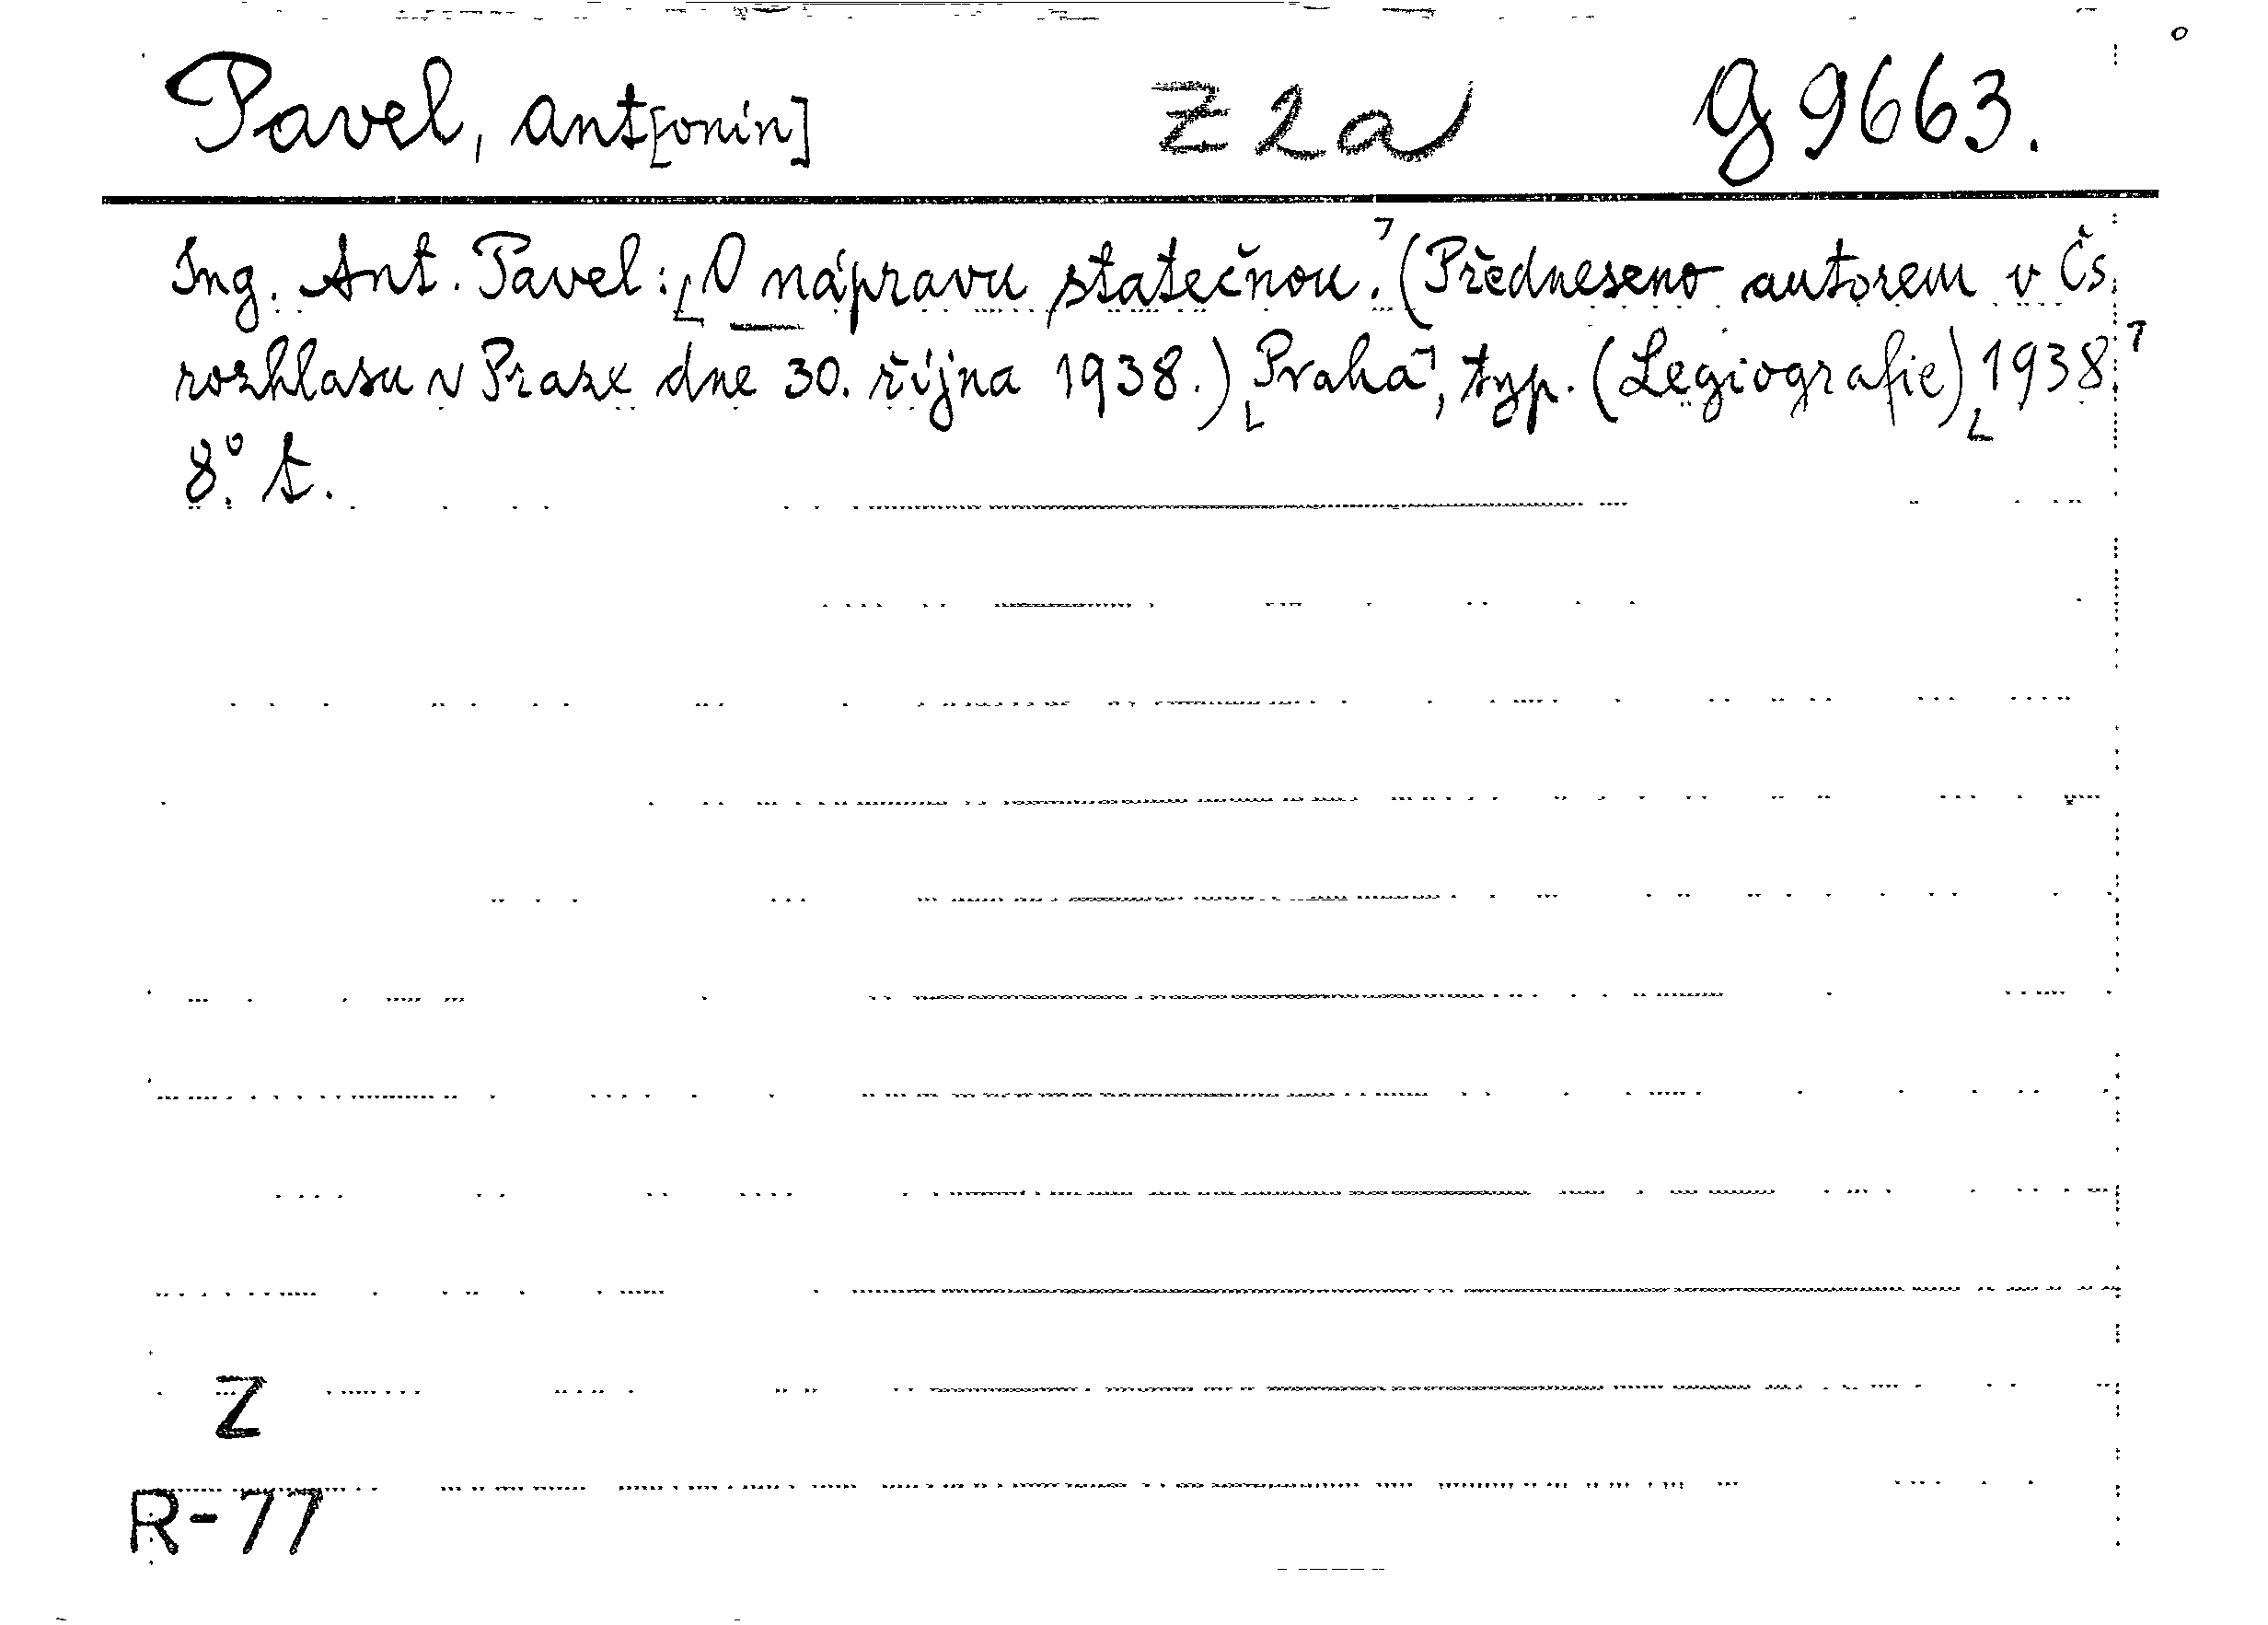 Pavel, Ant[onín] Z 2 a G 9663.
Ing. Ant. Pavel: O nápravu statečnou. (Předneseno autorem v Čs.
rozhlasu v Praze dne 30. října 1938.) Praha, typ. (Legiografie) 1938.
8°. t.
Z
R-77